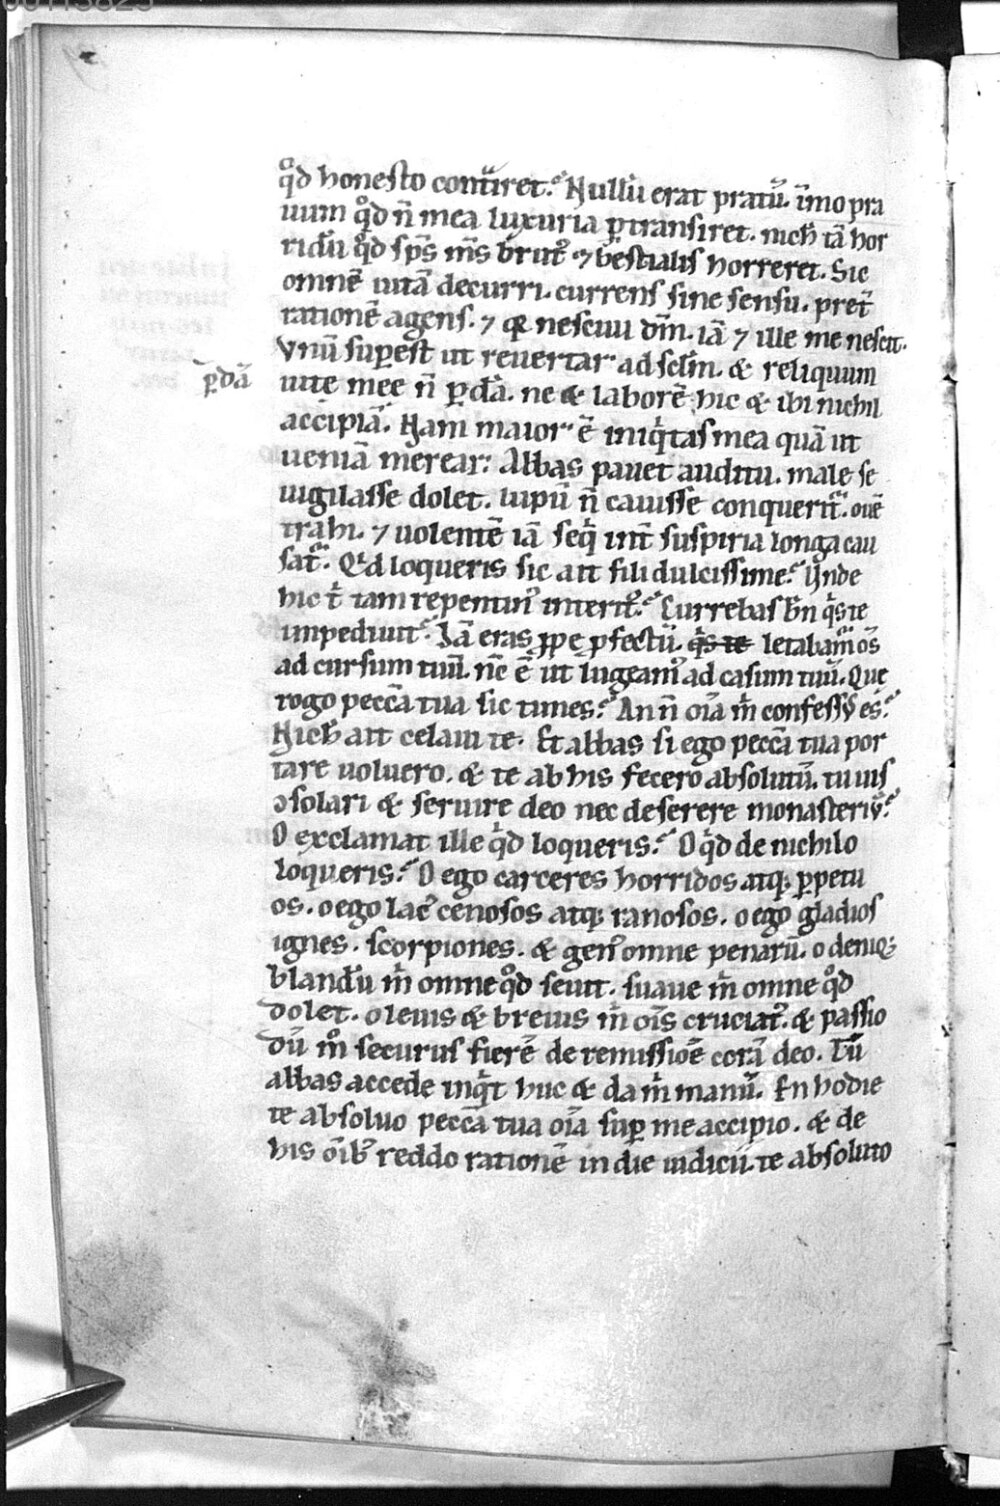 q͛d honesto contīret. Nullū erat pratū. īmo pra
uum qͦd n̄ mea luxuria ꝑtransiret. nich̄ tā hor
ridū qͦd sp̄s m̄s brut᷒ ⁊ bestialis horreret. Sic
omnē uitā decurri. currens sine sensu. preẗ
rationē agens. ⁊ qꝛ nesciui dm̄. iā ⁊ ille me nescit.
Vnū suꝑest ut reuertar ad sc̄lm. & reliquum
ꝑdā
uite mee n̄ ꝑdā. ne & laborē hic & ibi nichil
accipiā. Nam maior ē iniqͥtas mea quā ut
ueniā merear. Abbas pauet auditu. male se
uigilasse dolet. lupū n̄ cauisse conquerit᷑. ouē
trahi. ⁊ uolentē iā seqͥ int̄ suspiria longa cau
sat᷑. Qͥd loqueris sic ait fili dulcissime. Vnde
hic t̄ tam repentin᷒ interit᷒. Currebas bn̄ qͥs te
impediuit. Iā eras ꝓpe ꝑfectū. qͥs te letabam᷑ om̄s
ad cursum tuū. nc̄ ē ut lugeam᷒ ad casum tuū. Que
rogo pecc̄a tua sic times. An n̄ oīa m̄ confessus es.
Nich̄ ait celaui te. Et abbas si ego pecc̄a tua por
tare uoluero. & te ab his fecero absolutū. tu uis
ↄsolari & seruire deo nec deserere monasteriū.
O exclamat ille qͥd loqueris. O qͥd de nichilo
loqueris. O ego carceres horridos atqꝫ ꝑpetu
os. o ego lac᷒ cenosos atqꝫ ranosos. o ego gladios
ignes. scorpiones. & gen᷒ omne penarū. o deniqꝫ
blandū m̄ omne qͦd seuit. suaue m̄ omne qͦd
dolet. o leuis & breuis m̄ oīs cruciat᷒. & passio
dū mͦ securus fierē de remissiōe corā deo. Tū
abbas accede inqͥt huc & da m̄ manū. En hodie
te absoluo pecc̄a tua oīa suꝑ me accipio. & de
his oīb᷒ reddo rationē in die iudicii. te absoluto